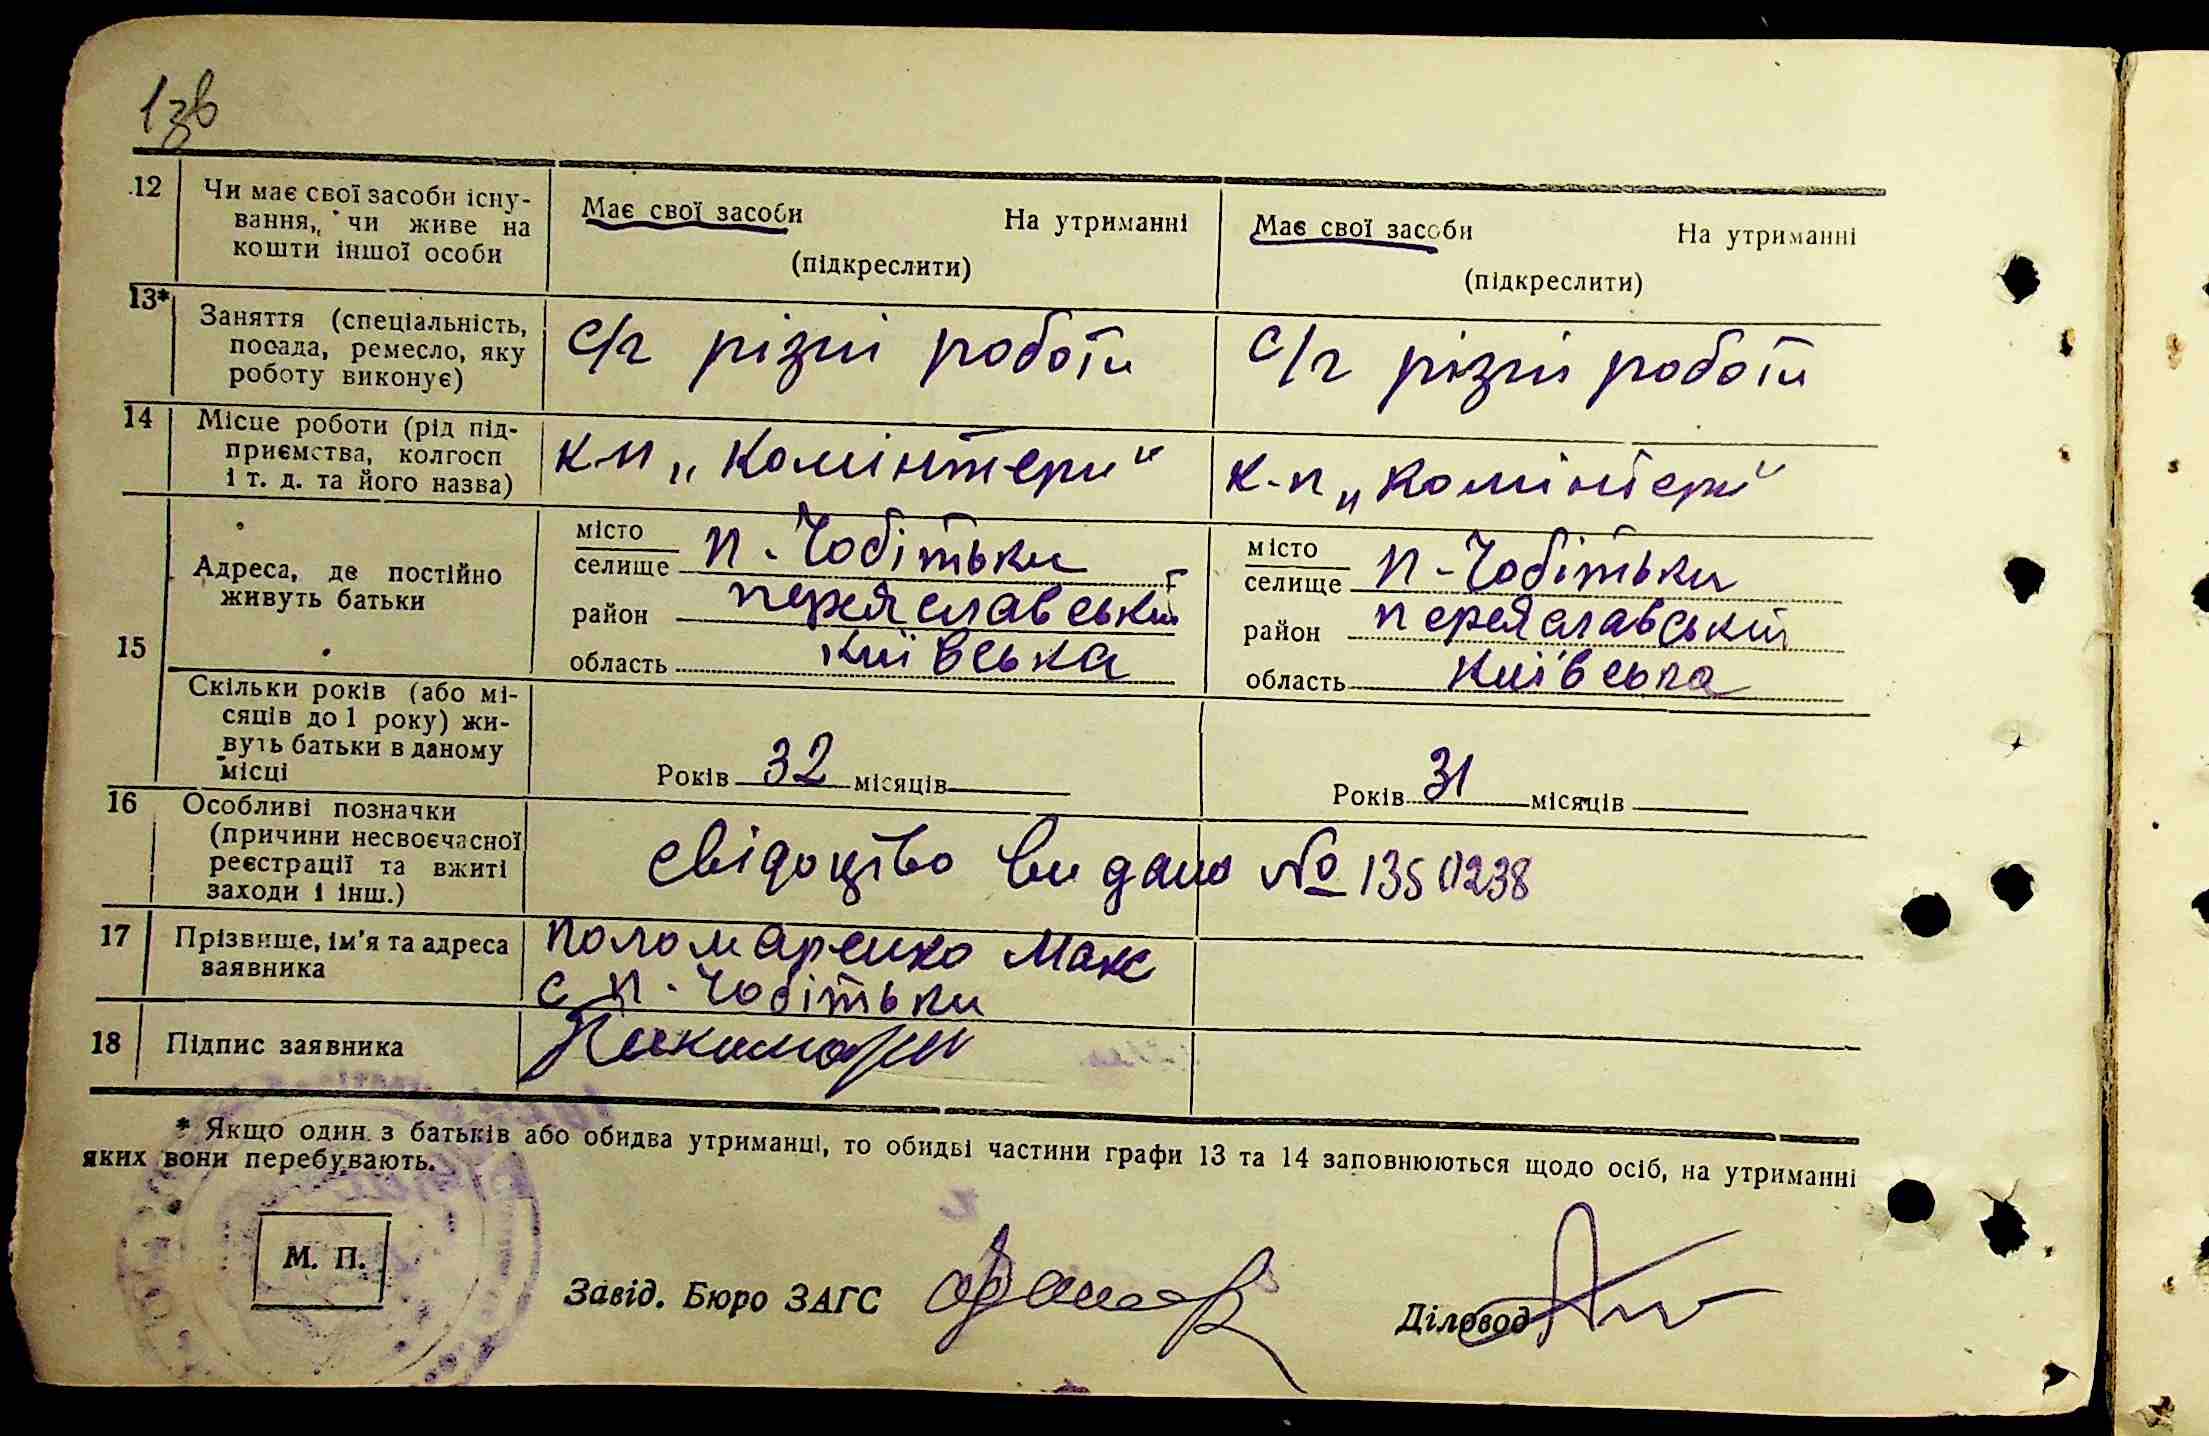 1зв
12 Чи має свої засоби існу-
вання, чи живе на
кошти іншої особи
Має свої засоби На утриманні
(підкреслити)
Має свої засоби На утриманні
(підкреслити)
13* Заняття (спеціальність,
посада, ремесло, яку
роботу виконує)
с/г різні роботи
с/г різні роботи
14 Місце роботи (рід під-
приємства, колгосп
і т. д. та його назва)
к-п „Комінтерн"
к-п „Комінтерн"
15 Адреса, де постійно
живуть батьки
місто
селище п-Чобітьки
район переяславський
область київська
місто
селище п-Чобітьки
район переяславський
область київська
Скільки років (або мі-
сяців до 1 року) жи-
вуть батьки в даному
місці
Років 32 місяців
Років 31 місяців
16 Особливі позначки
(причини несвоєчасної
реєстрації та вжиті
заходи і інш.)
свідоцтво видано № 1350238
17 Прізвище, ім'я та адреса
заявника
поломаренко Макс
с п-Чобітьки
18 Підпис заявника
* Якщо один з батьків або обидва утриманці, то обидві частини графи 13 та 14 заповнюються щодо осіб, на утриманні
яких вони перебувають.
М. П.
Завід. Бюро ЗАГС
Діловод